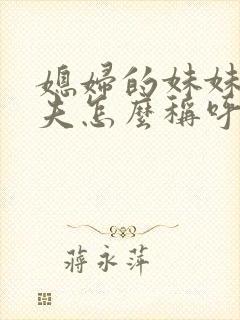 媳婦的妹妹
夫怎麼稱呼
蔣永萍